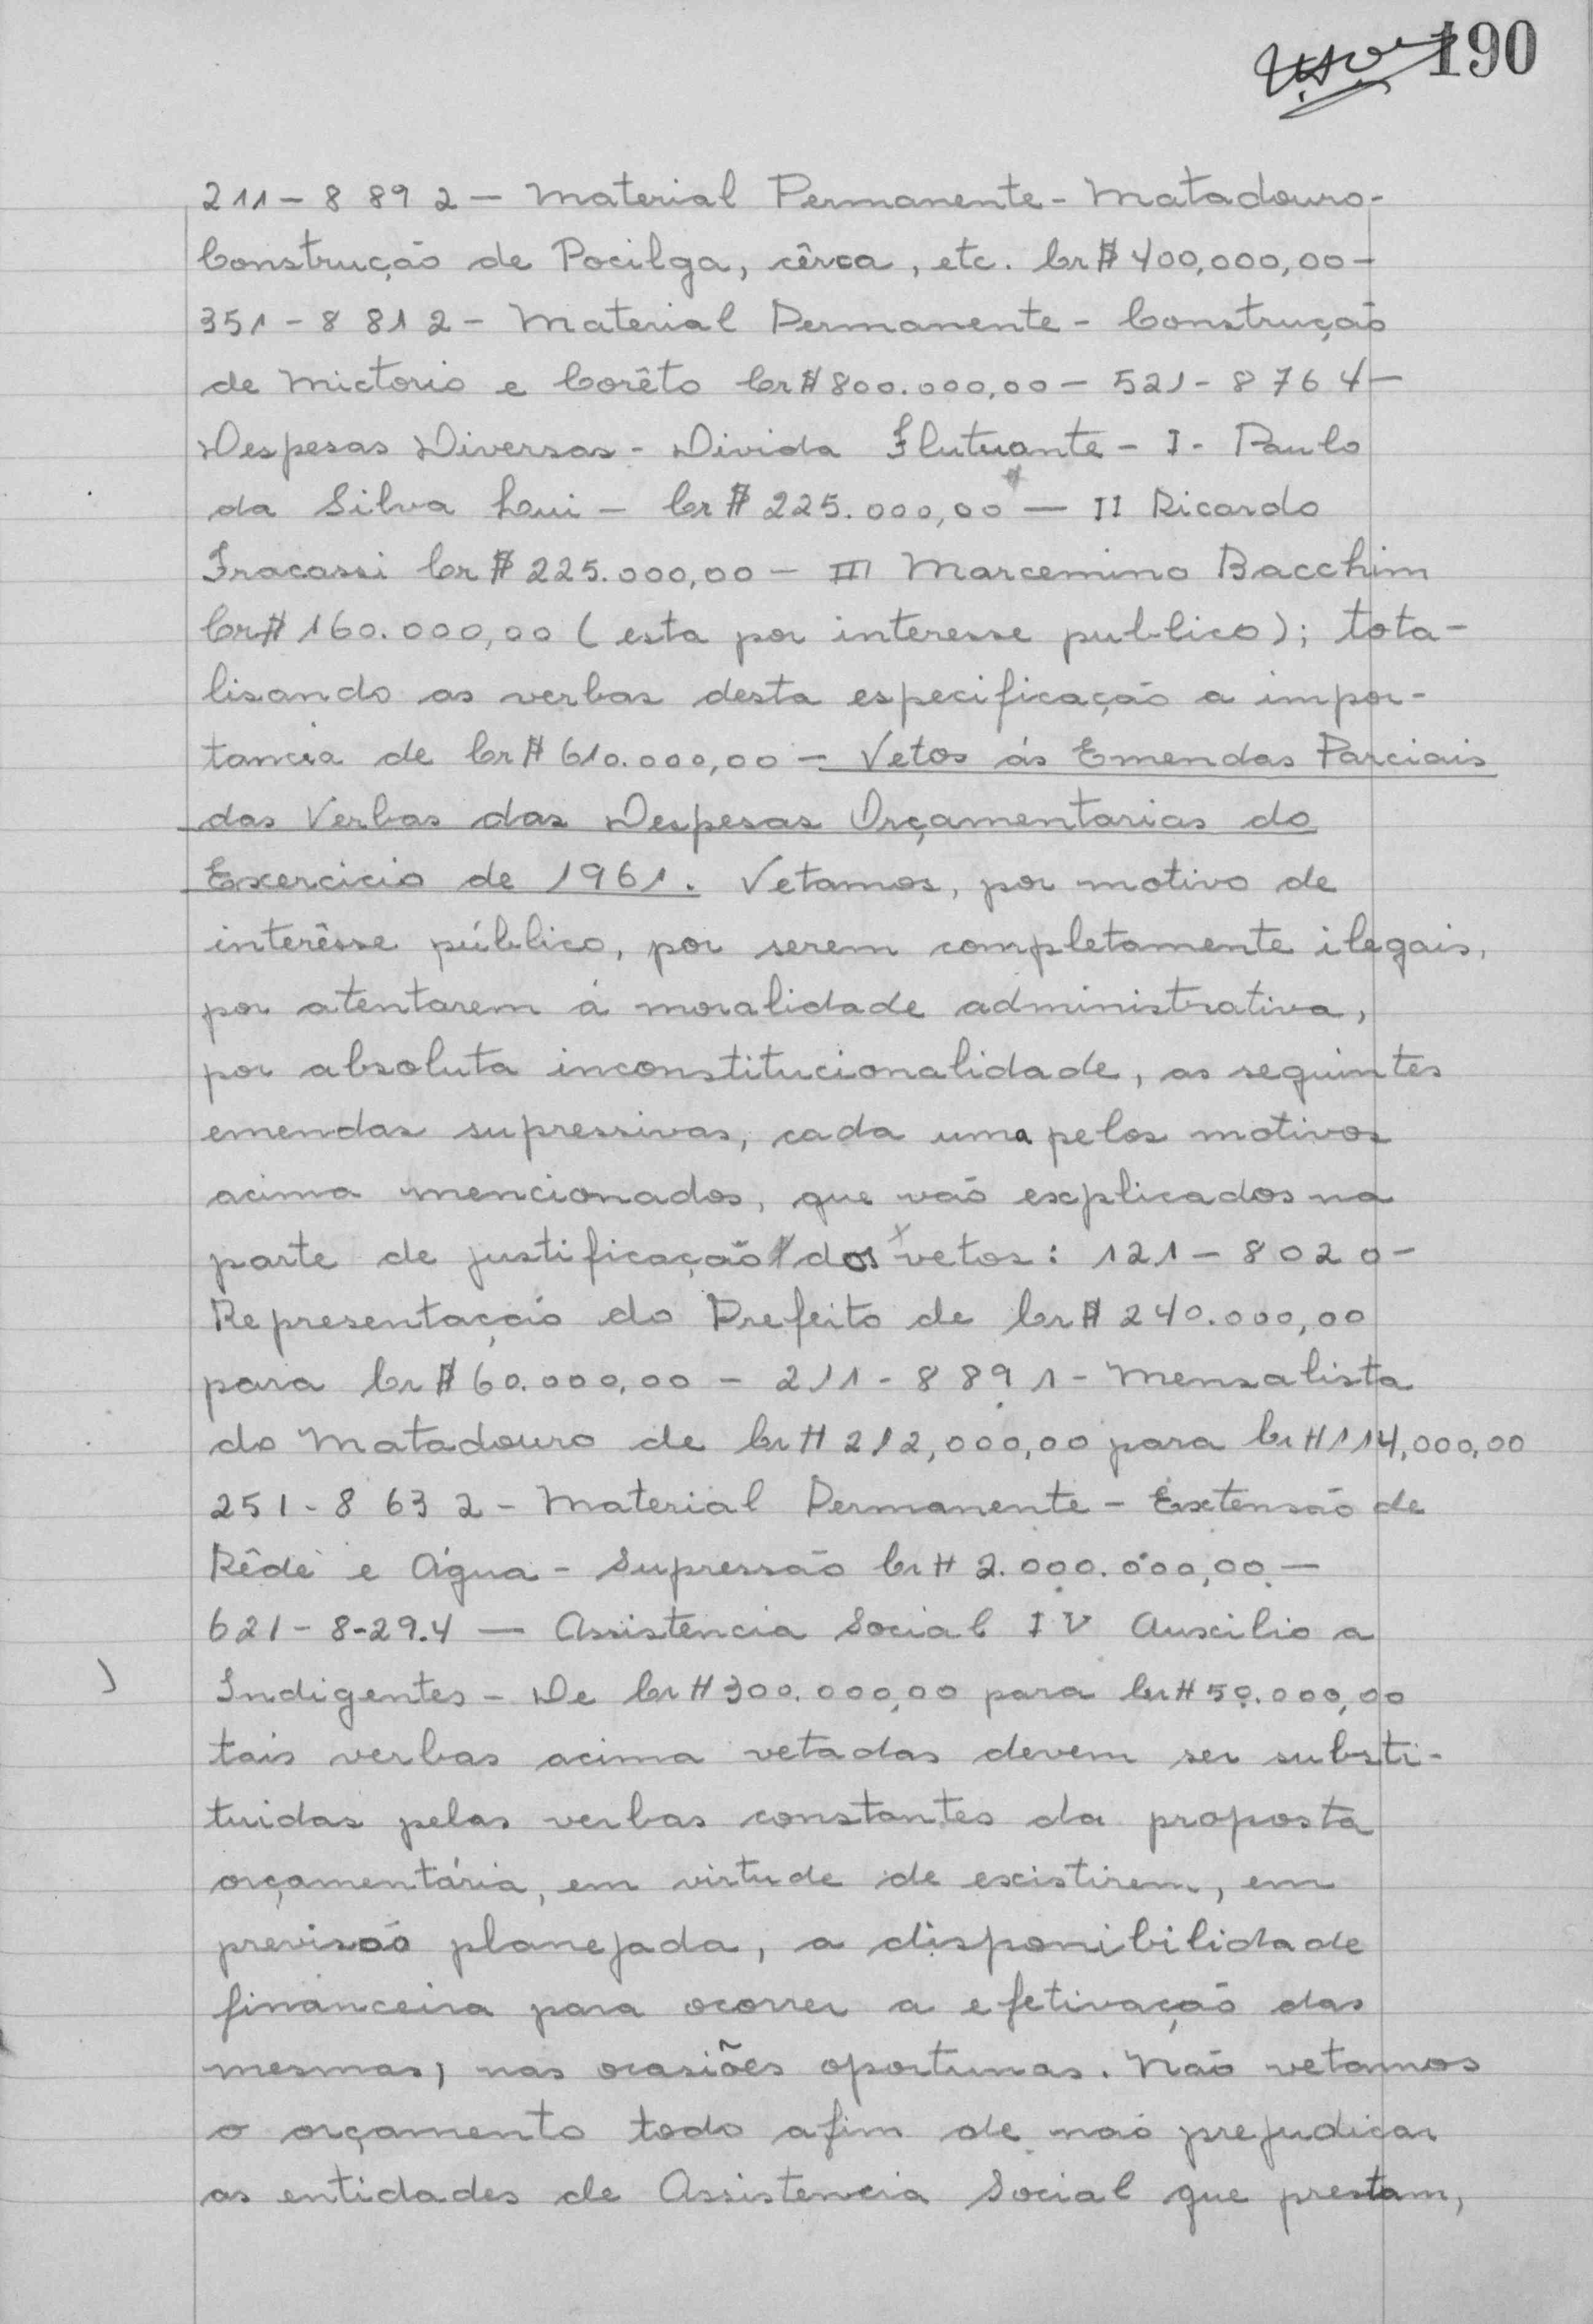 190
211 - 8 89 2 - Material Permanente - Matadouro -
Construção de Pocilga, cêrca, etc. Cr$ 400,000,00 -
351 - 8 81 2 - Material Permanente - Construção
de Mictorio e Corêto Cr$ 800.000,00 - 521 - 8 76 4 -
Despesas Diversas - Divida Flutuante - I - Paulo
da Silva Lui - Cr$ 225.000,00 - II Ricardo
Fracassi Cr$ 225.000,00 - III Marcemino Bacchim
Cr$ 160.000,00 (esta por interesse publico); tota-
lisando as verbas desta especificação a impor-
tancia de Cr$ 610.000,00 - Vetos ás Emendas Parciais
das Verbas das Despesas Orçamentarias do
Exercicio de 1961. Vetamos, por motivo de
interêsse público, por serem completamente ilegais,
por atentarem á moralidade administrativa,
por absoluta inconstitucionalidade, as seguintes
emendas supressivas, cada uma pelos motivos
acima mencionados, que vão explicados na
parte de justificação dos vetos: 121 - 8 02 0 -
Representação do Prefeito de Cr$ 240.000,00
para Cr$ 60.000,00 - 211 - 8 89 1 - Mensalista
do Matadouro de Cr$ 212,000,00 para Cr$ 114,000,00
251 - 8 63 2 - Material Permanente - Extensão de
Rêde e Água - Supressão Cr$ 2.000.000,00 -
621 - 8-29.4 - Assistencia Social IV Auxilio a
Indigentes - De Cr$ 300.000,00 para Cr$ 50.000,00
tais verbas acima vetadas devem ser substi-
tuidas pelas verbas constantes da proposta
orçamentária, em virtude de existirem, em
previsão planejada, a disponibilidade
financeira para ocorrer a efetivação das
mesmas, nas ocasiões oportunas. Não vetamos
o orçamento todo afim de não prejudicar
as entidades de Assistencia Social que prestam,